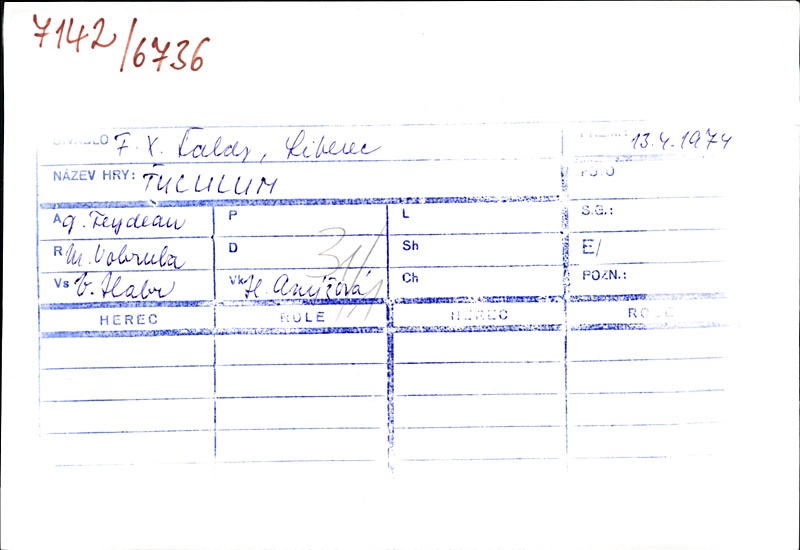 7142/6736
DIVADLO F. X. Šaldy, Liberec 13.4.1974
NÁZEV HRY: TUCULUM FOTO
A G. Feydeau P L S.G.:
R M. Vobruba D Sh E/
Vs V. Habr Vk H. Anýžová Ch POZN.:
31/1
HEREC ROLE HEREC ROLE